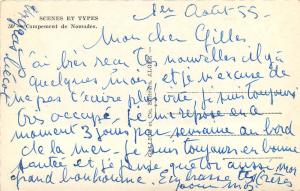 SCENES ET TYPES
Campement de Nomades.
1er Août 55
Mon cher Gilles
J'ai bien reçu tes nouvelles il y a
quelques mois et je m'excuse de
ne pas t'écrire plus vite, je suis toujours
très occupé, je me repose en ce
moment 3 jours par semaine au bord
de la mer. Je suis toujours en bonne
santée et je pense que toi aussi mon
grand bonhomme. Embrasse
pour moi